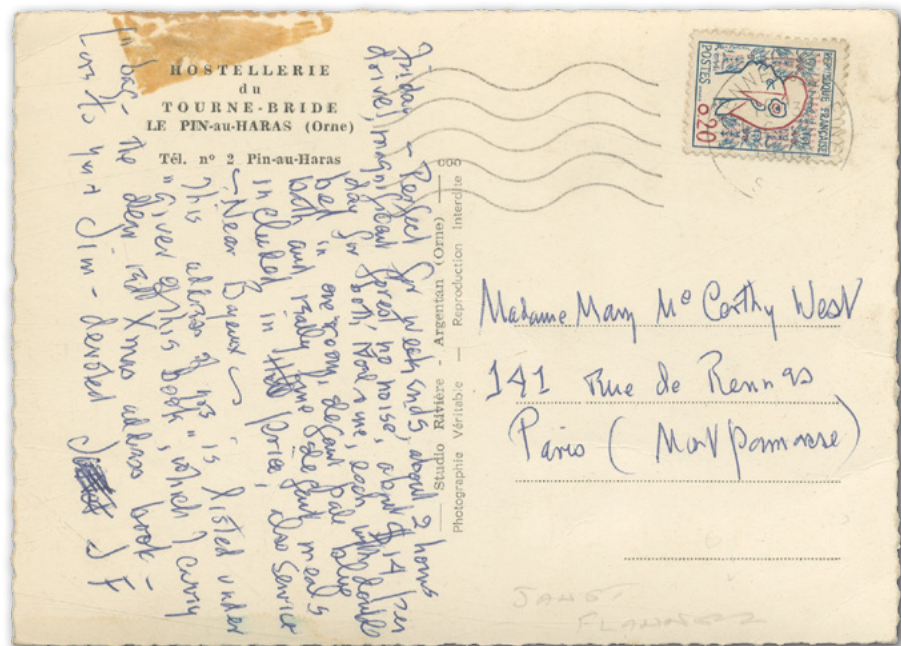 HOSTELLERIE
du
TOURNE-BRIDE
LE PIN-au-HARAS (Orne)
Tél. n° 2 Pin-au-Haras
Friday - Perfect for week ends, about 2 hours
drive, magnificent forest no noise, about $14 per
day for both, & me, each with double
bed in one room, decent pale blue
bath and really fine & meals
included in price, also service
- Near Bayeux -
This address of yrs is listed under
"Giver of this book", which I carry
in bag - the dear red Xmas address book -
Love to you & Jim - devoted J F
Studio Rivière - Argentan (Orne)
Photographie Véritable — Reproduction Interdite
REPUBLIQUE FRANCAISE
POSTES
0,20
Madame Mary Mc Carthy West
141 Rue de Rennes
Paris (Montparnasse)
JANET
FLANNER